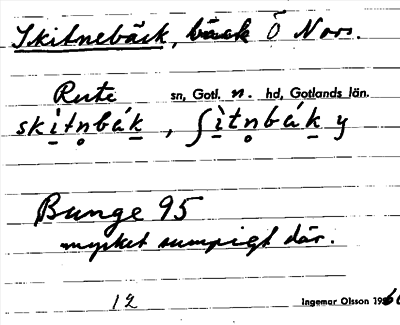 Skitnebäck, bäck Ö Nors.
Rute sn, Gotl. n. hd, Gotlands län.
skìtnbák, ʃìtnbák y
Bunge 95
mycket sumpigt där.
12 Ingemar Olsson 1966